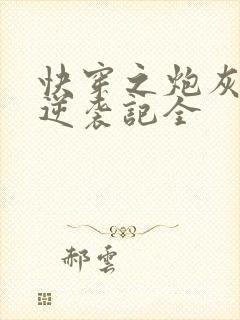 快穿之炮灰
逆袭記全
郝雲